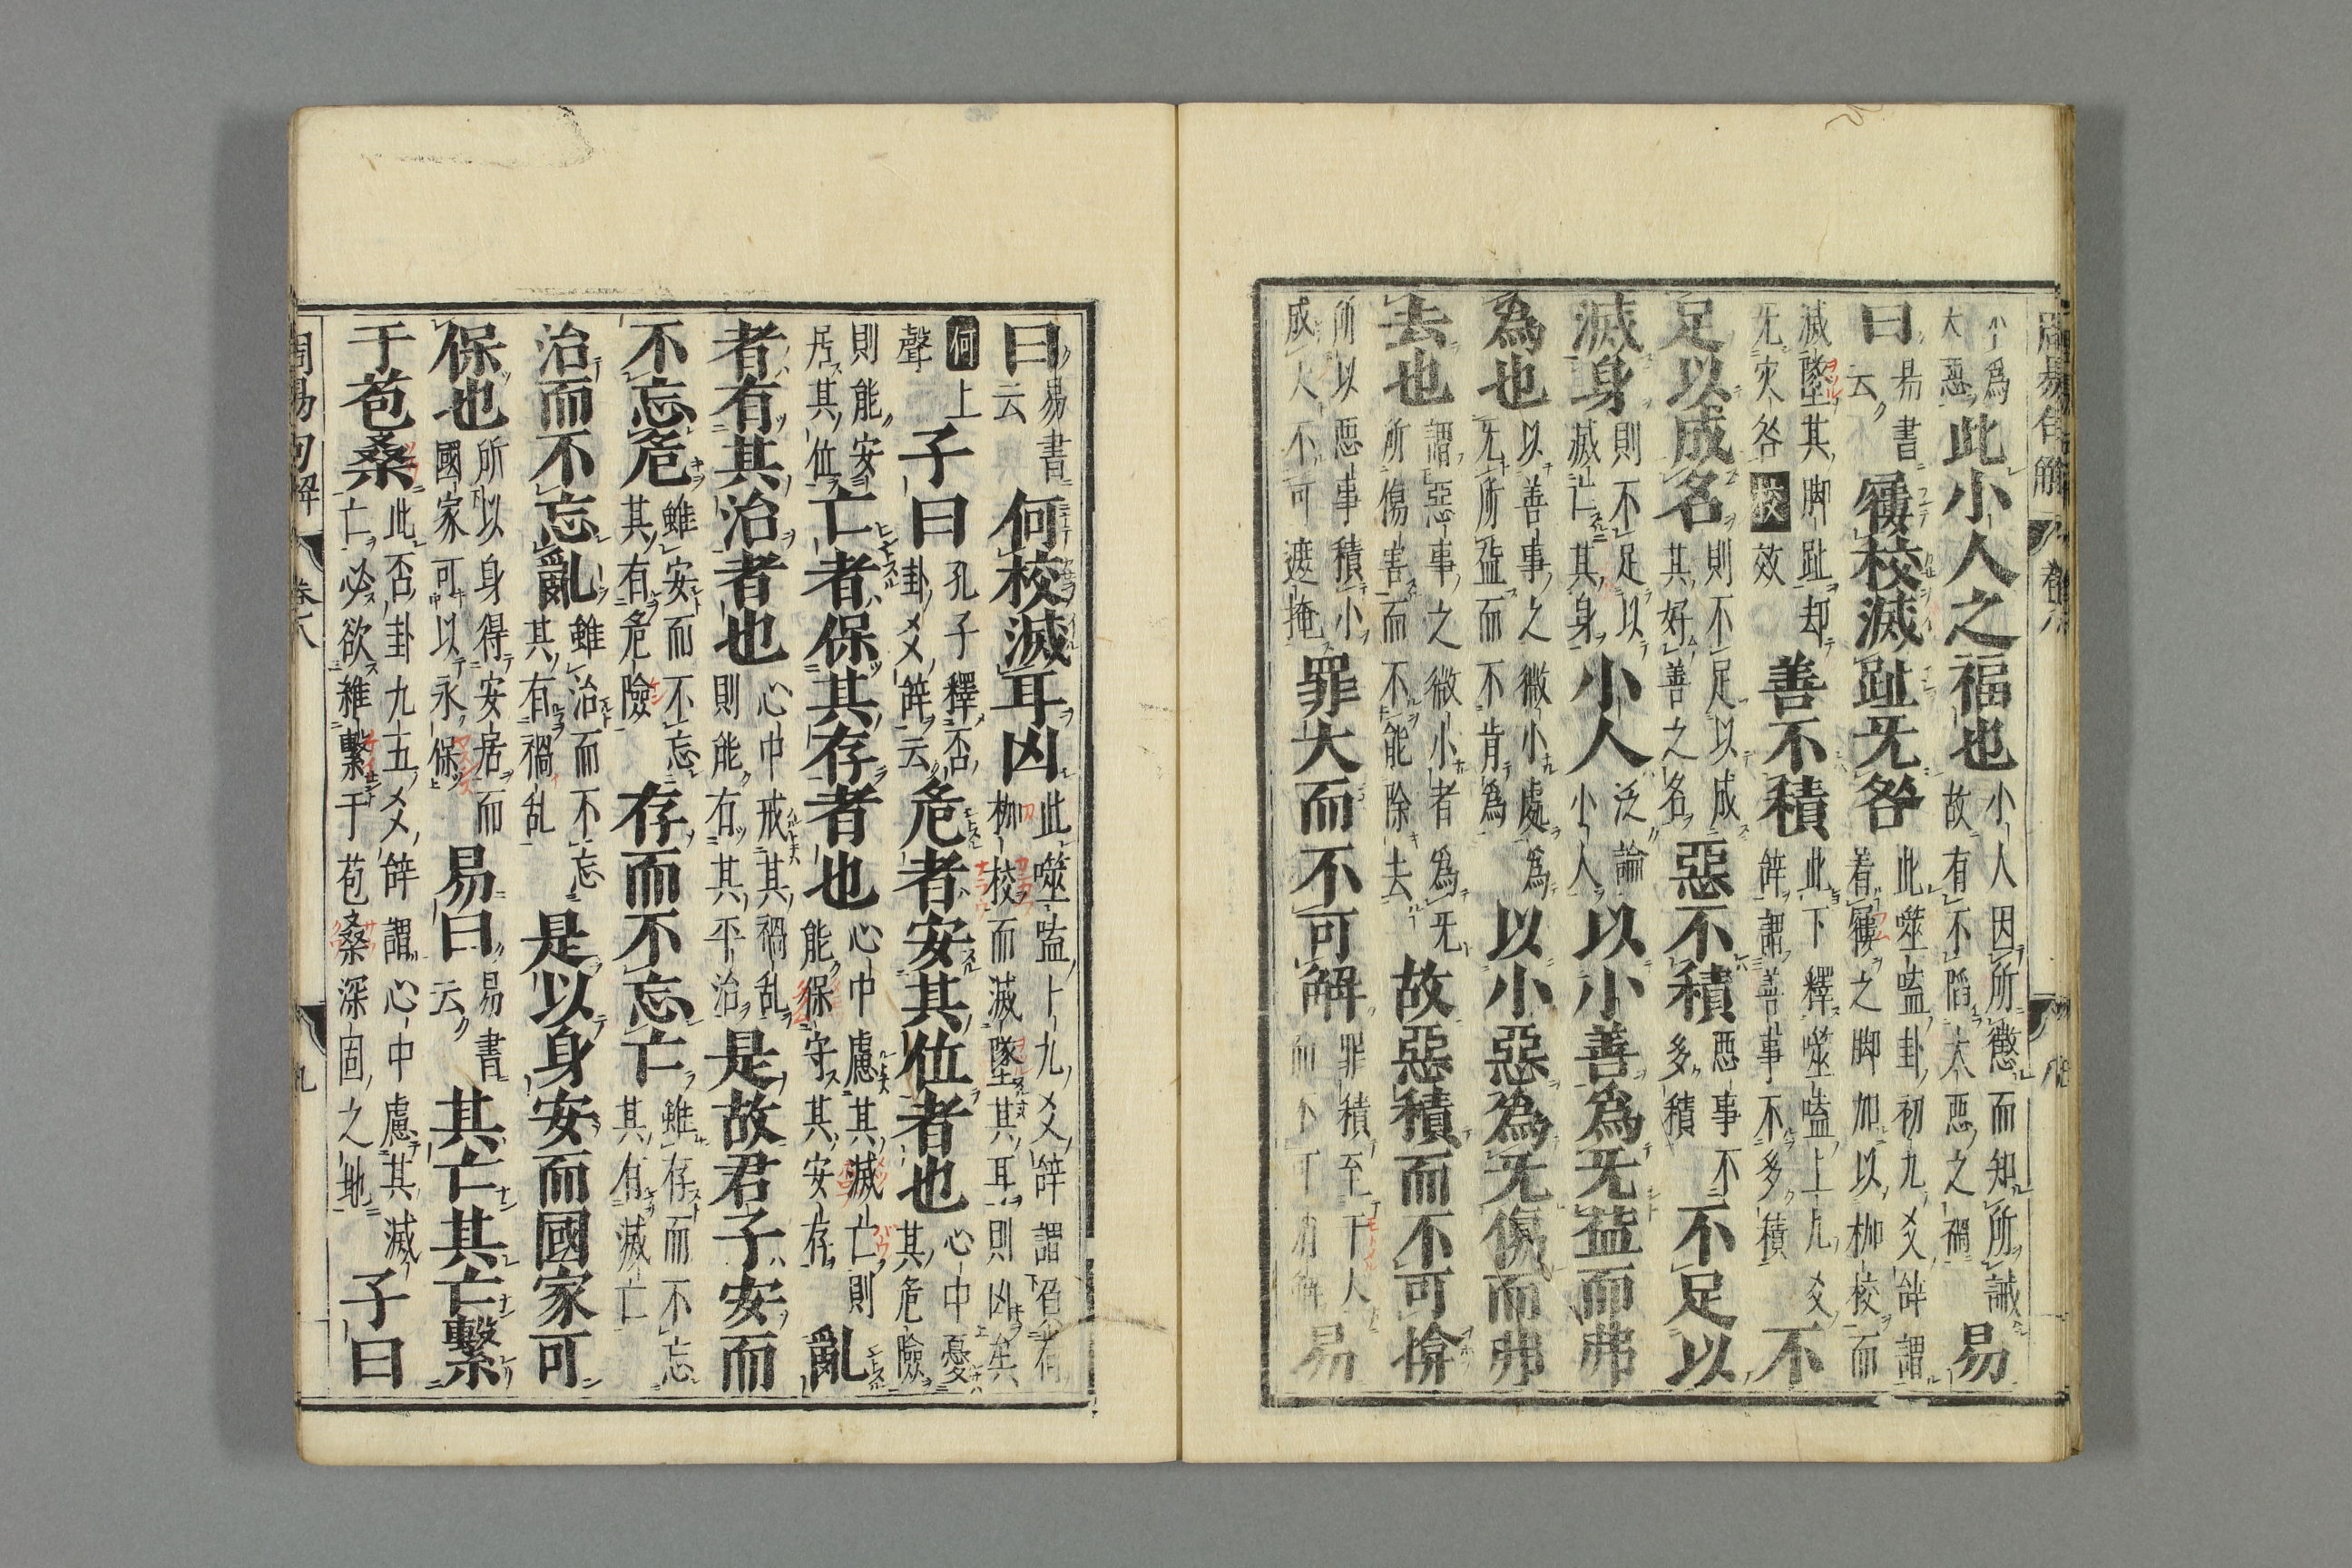 周易句解 卷八 八
小爲大惡此小人之福也小人因所懲而知所誡故有不陷太惡之禍易
曰易書云屨校滅趾旡咎此噬嗑卦初九爻辝謂着屨之脚加以枷校而
滅墜其脚趾却旡灾咎校效善不積此下釋噬嗑上九爻辝謂善事不多積不
足以成名則不足以成其好善之名惡不積惡事不多積不足以
滅身則不足以滅亡其身小人泛論小人以小善爲旡益而弗
為也以善事之微小處爲旡所益而不肯爲以小惡為旡傷而弗
去也謂惡事之微小者爲旡所傷害而不能除去故惡積而不可揜
所以惡事積小成大不可遮掩罪大而不可解罪積至于大而不可消解易
曰易書云何校滅耳凶此噬嗑上九爻辝謂有枷校而滅墜其耳則凶矣
何上聲子曰孔子釋否卦爻辝云危者安其位者也心中憂其危險
則能安居其位亡者保其存者也心中慮其滅亡則能保守其安存亂
者有其治者也心中戒其禍乱則能有其平治是故君子安而
不忘危雖安而不忘其有危險存而不忘亡雖存而不忘其有滅亡
治而不忘亂雖治而不忘其有禍乱是以身安而國家可
保也所以身得安居而國家可以永保易曰易書云其亡其亡繫
于苞桑此否卦九五爻辝謂心中慮其滅亡必欲維繫于苞桑深固之地子曰
周易句解 卷八 九